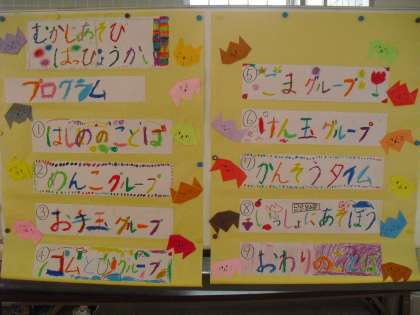 むかしあそび
はっぴょうかい
プログラム
①はじめのことば
②めんこグループ
③お手玉グループ
④ゴムとびグループ
⑤こまグループ
⑥けん玉グループ
⑦かんそうタイム
⑧いっしょにあそぼう
⑨おわりのことば